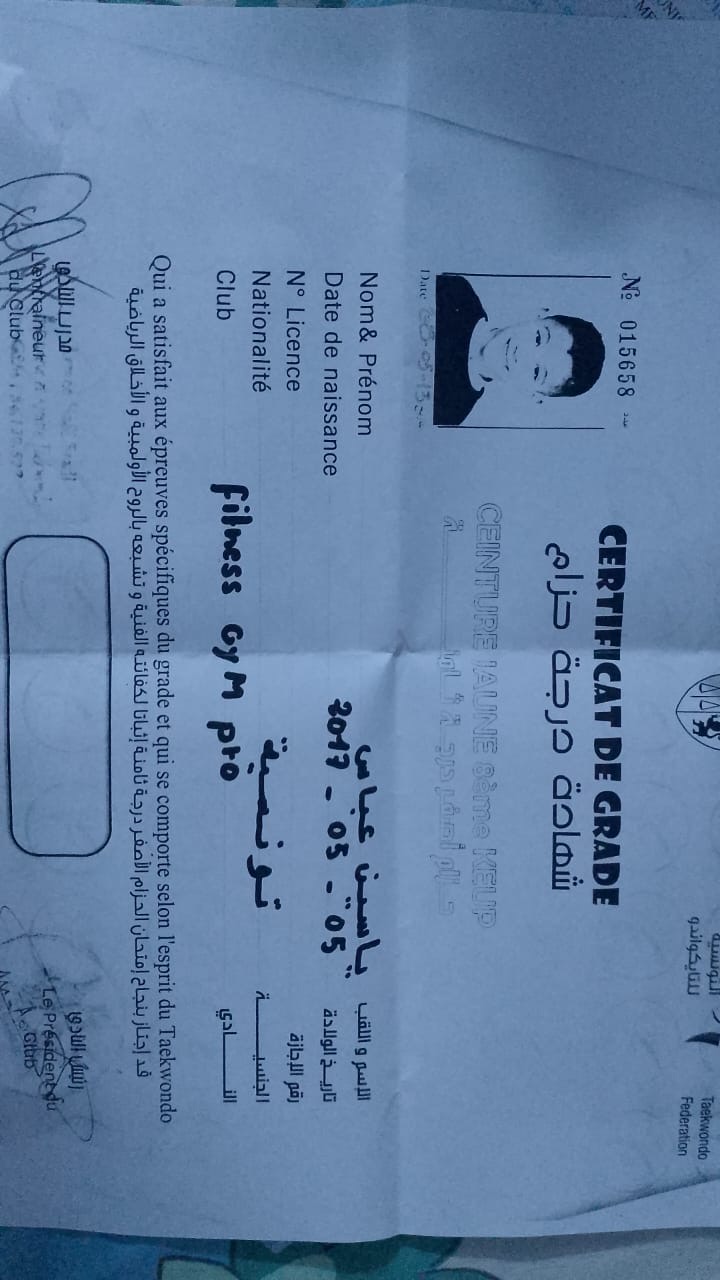 التونسية
للتايكواندو
Taekwondo
Federation
CERTIFICAT DE GRADE
شهادة درجة حزام
№ 015658 عدد
CEINTURE JAUNE 8ème KEUP
حزام أصفر درجة ثامنة
Date
Nom& Prénom ياسين عباس الإسم و اللقب
Date de naissance 2017-05-05 تاريخ الولادة
N° Licence رقم الإجازة
Nationalité تونسية الجنسية
Club fitness Gym pro النادي
Qui a satisfait aux épreuves spécifiques du grade et qui se comporte selon l'esprit du Taekwondo
قد إجتاز بنجاح إمتحان الحزام الأصفر درجة ثامنة إثباتا لكفائته الفنية و تشبعه بالروح الأولمبية و الأخلاق الرياضية
مدرب النادي
L'entraîneur
du Club
رئيس النادي
Le Président du
Club